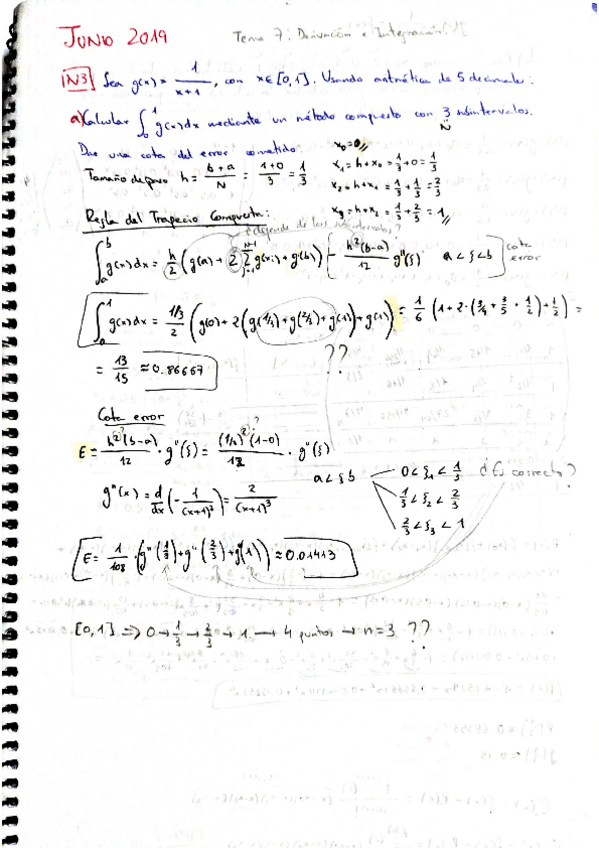 JUNIO 2019
Tema 7: Derivación e Integración
N3 Sea g(x) = 1/(x+1), con x∈[0,1]. Usando aritmética de 5 decimales:
a) Calcular ∫₀¹ g(x)dx mediante un método compuesto con 3 subintervalos.
N
Dar una cota del error cometido.
Tamaño de paso h = (b+a)/N = (1+0)/3 = 1/3
x₀ = 0
x₁ = h+x₀ = 1/3+0 = 1/3
x₂ = h+x₁ = 1/3+1/3 = 2/3
x₃ = h+x₂ = 1/3+2/3 = 1
Regla del Trapecio Compuesta:
depende de los subintervalos?
∫ₐᵇ g(x)dx = h/2 (g(a) + 2 Σ g(xᵢ) + g(b)) - h²(b-a)/12 g''(ξ) a<ξ<b cota error
∫ₐ¹ g(x)dx = (1/3)/2 (g(0) + 2(g(1/3)+g(2/3)+g(1)) + g(1)) = 1/6 (1+2·(3/4+3/5+1/2)+1/2) =
??
= 13/15 ≈ 0.86667
Cota error
E = h²(b-a)/12 · g''(ξ) = (1/3)²(1-0)/12 · g''(ξ)
?
a<ξ<b
0<ξ₁<1/3
¿Es correcto?
1/3<ξ₂<2/3
2/3<ξ₃<1
g''(x) = d/dx (-1/(x+1)²) = 2/(x+1)³
E = 1/108 · (g''(1/3)+g''(2/3)+g''(1)) ≈ 0.01413
[0,1] ⇒ 0→1/3→2/3→1 → 4 puntos → n=3 ??